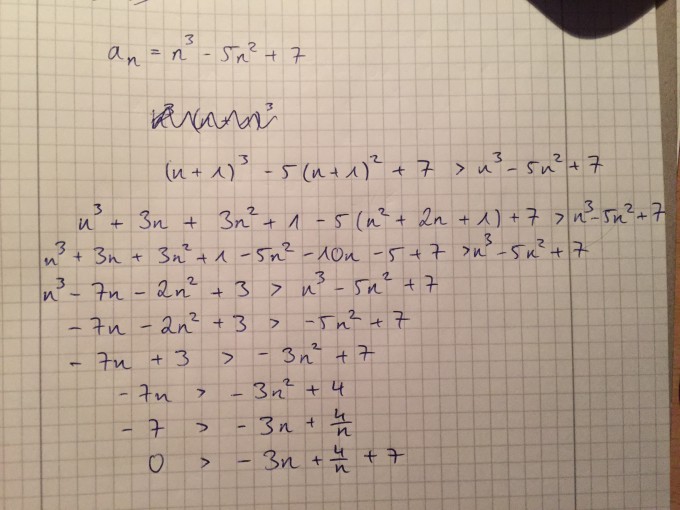 aₙ = n³ - 5n² + 7
(n + 1)³ - 5(n + 1)² + 7 > n³ - 5n² + 7
n³ + 3n + 3n² + 1 - 5(n² + 2n + 1) + 7 > n³ - 5n² + 7
n³ + 3n + 3n² + 1 - 5n² - 10n - 5 + 7 > n³ - 5n² + 7
n³ - 7n - 2n² + 3 > n³ - 5n² + 7
- 7n - 2n² + 3 > -5n² + 7
- 7n + 3 > - 3n² + 7
- 7n > - 3n² + 4
- 7 > - 3n + 4/n
0 > - 3n + 4/n + 7